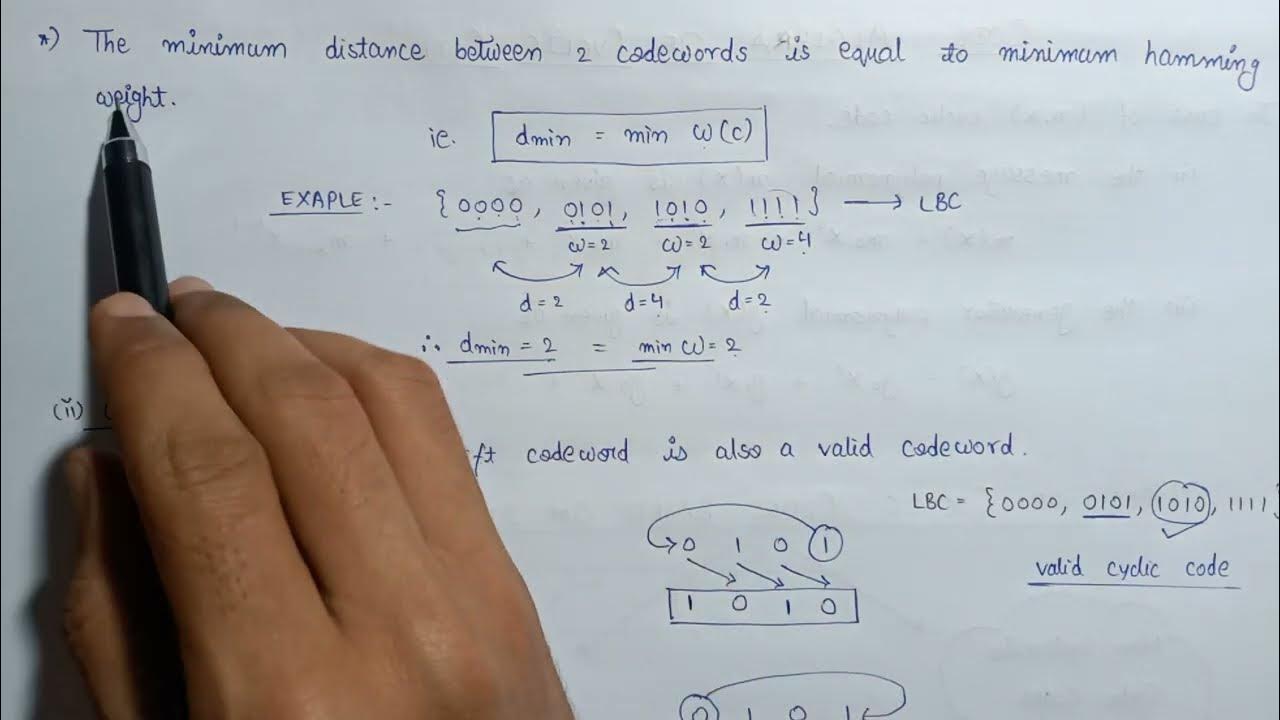 *) The minimum distance between 2 codewords is equal to minimum hamming
weight.
ie. dmin = min ω(c)
EXAPLE :- {0000, 0101, 1010, 1111} → LBC
ω=2 ω=2 ω=4
d=2 d=4 d=2
∴ dmin = 2 = min ω = 2
(ii)
codeword is also a valid codeword.
LBC = {0000, 0101, 1010, 1111}
0 1 0 1
valid cyclic code
1 0 1 0
0 1 0 1